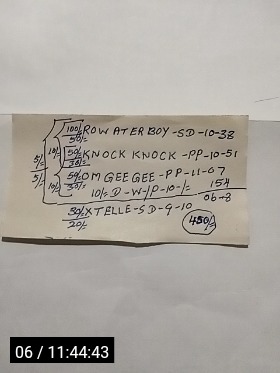 100/- ROWATERBOY-SD-10-38
50/-
50/- KNOCK KNOCK-PP-10-51
30/-
50/- OM GEE GEE-PP-11-07
30/-
10/- D-W-/P-10-/= 154
06-8
30/- XTELLE-SD-9-10
20/-
450/-
5/-
5/-
10/-
10/-
06 / 11:44:43